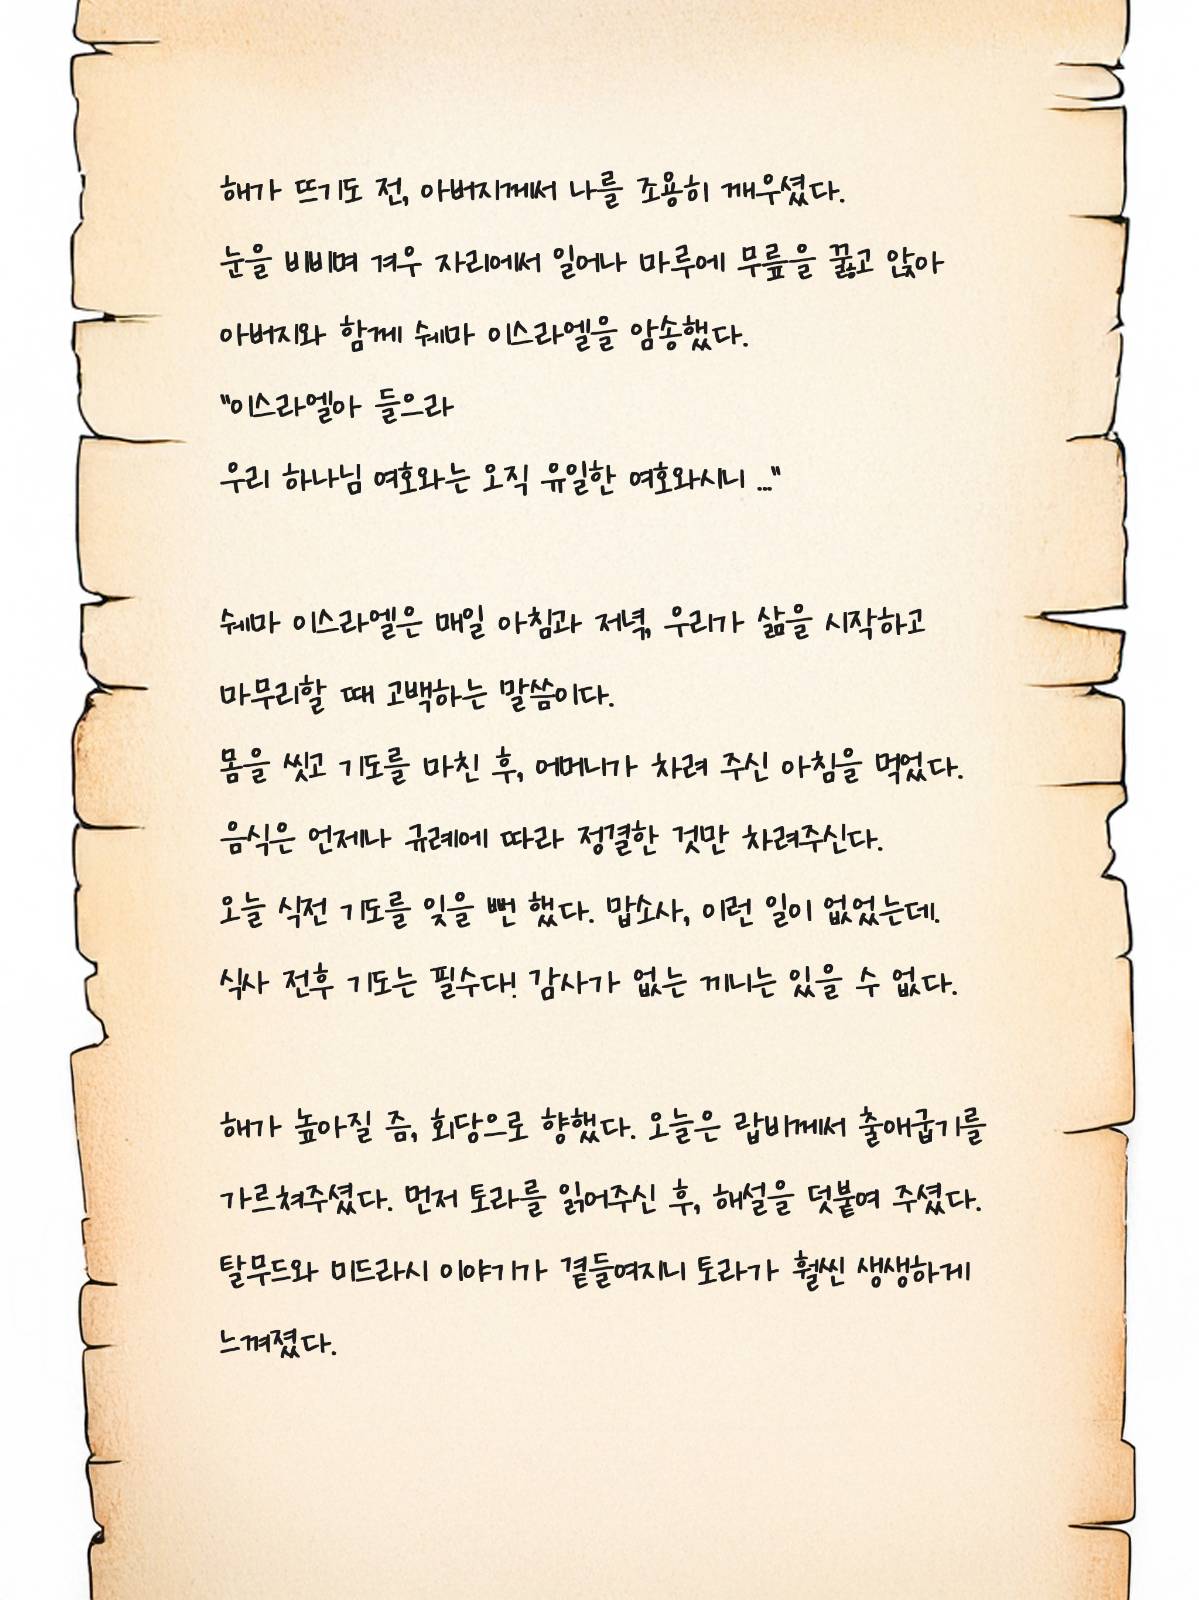 해가 뜨기도 전, 아버지께서 나를 조용히 깨우셨다.
눈을 비비며 겨우 자리에서 일어나 마루에 무릎을 꿇고 앉아
아버지와 함께 쉐마 이스라엘을 암송했다.
"이스라엘아 들으라
우리 하나님 여호와는 오직 유일한 여호와시니 ..."
쉐마 이스라엘은 매일 아침과 저녁, 우리가 삶을 시작하고
마무리할 때 고백하는 말씀이다.
몸을 씻고 기도를 마친 후, 어머니가 차려 주신 아침을 먹었다.
음식은 언제나 규례에 따라 정결한 것만 차려주신다.
오늘 식전 기도를 잊을 뻔 했다. 맙소사, 이런 일이 없었는데.
식사 전후 기도는 필수다! 감사가 없는 끼니는 있을 수 없다.
해가 높아질 즘, 회당으로 향했다. 오늘은 랍비께서 출애굽기를
가르쳐주셨다. 먼저 토라를 읽어주신 후, 해설을 덧붙여 주셨다.
탈무드와 미드라시 이야기가 곁들여지니 토라가 훨씬 생생하게
느껴졌다.